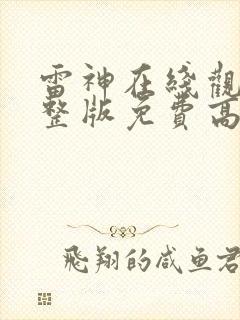 雷神在綫觀
整版免費高
飛翔的咸鱼君